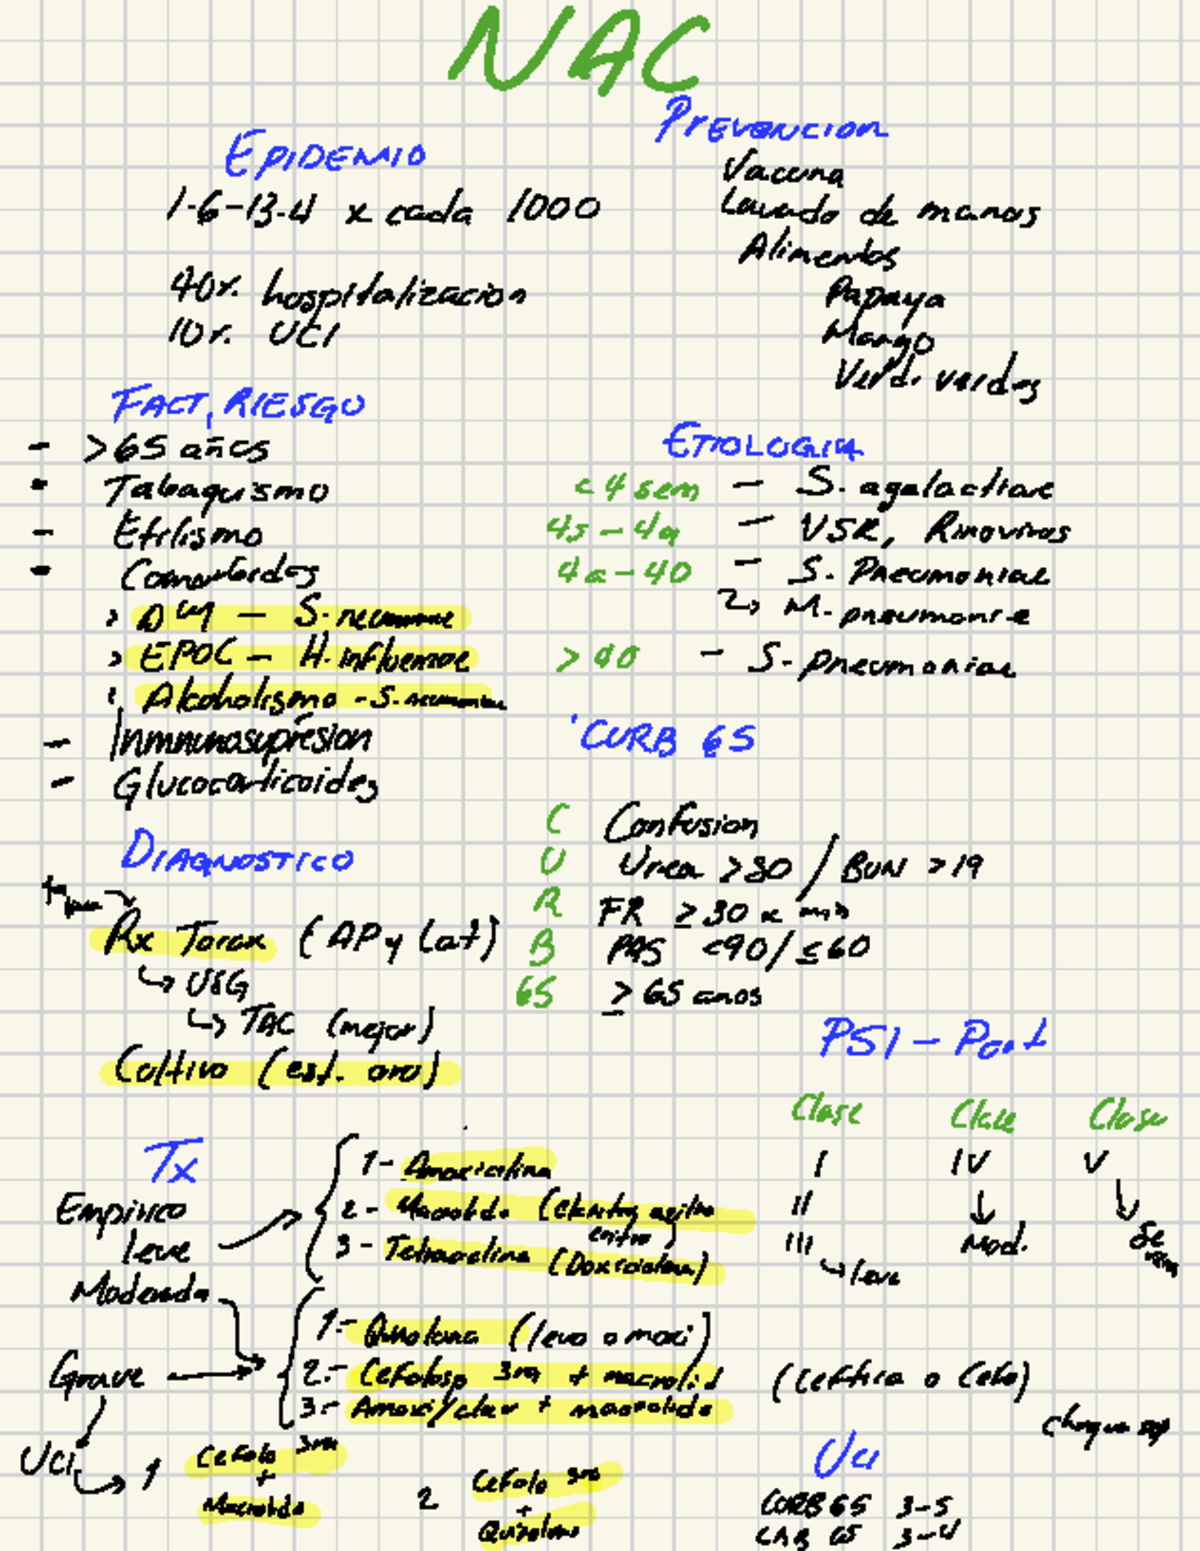 NAC
EPIDEMIO
1-6-13-4 x cada 1000
40%. hospitalizacion
10%. UCI
PREVENCION
Vacuna
Lavado de manos
Alimentos
Papaya
Mango
Verd. verdes
FACT. RIESGO
- >65 años
- Tabaquismo
- Etilismo
- Comorbidos
> DM - S.
> EPOC - H. influenzae
Alcoholismo - S.
- Inmnunosupresion
- Glucocorticoides
ETIOLOGIA
<4 sem - S. agalactiae
4s-4a - VSR, Rinovirus
4a-40 - S. Pneumoniae
↳ M. pneumoniae
>40 - S. pneumoniae
CURB 65
C Confusion
U Urea >30 / BUN >19
R FR ≥30 x min
B PAS <90/≤60
65 ≥65 anos
DIAGNOSTICO
Rx Torax (AP y lat)
↳ USG
↳ TAC (mejor)
Cultivo (est. oro)
PSI-Port
Clase Clase Clase
I IV V
II ↓ ↓
III Mod. Se
↳ leve
Tx
Empirico
leve
Moderada
Grave
UCI
1- Amoxicilina
2- Macrolido (Claritro, azitro
eritro)
3- Tetraciclina (Doxiciclina)
1.- Quinolona (levo o moxi)
2.- Cefalosp 3ra + macrolid (Ceftria o Cefo)
3.- Amoxi/clav + macrolido
1 Cefalo 3ra
+
Macrolido
2 Cefalo 3ra
+
Quinolona
choque sep
UCI
CURB65 3-5
CRB 65 3-4